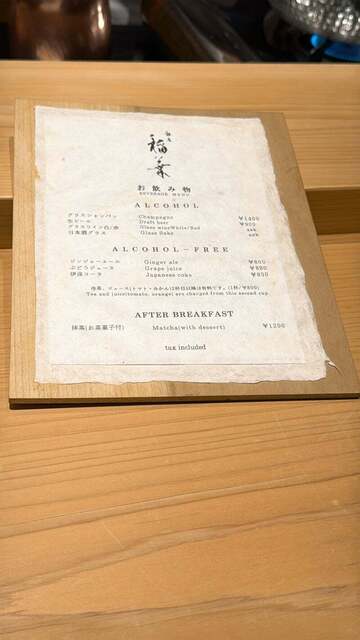 稲葉
お飲み物
BEVERAGE MENU
ALCOHOL
グラスシャンパン Champagne ¥1400
生ビール Draft beer ¥900
グラスワイン白/赤 Glass wine White/Red ask.
日本酒グラス Glass Sake ask.
ALCOHOL-FREE
ジンジャーエール Ginger ale ¥800
ぶどうジュース Grape juice
伊良コーラ Japanese coke
Tea and juice(tomato, orange) are charged from this second cup.
AFTER BREAKFAST
抹茶(お茶菓子付) Matcha(with dessert) ¥1200
tax included